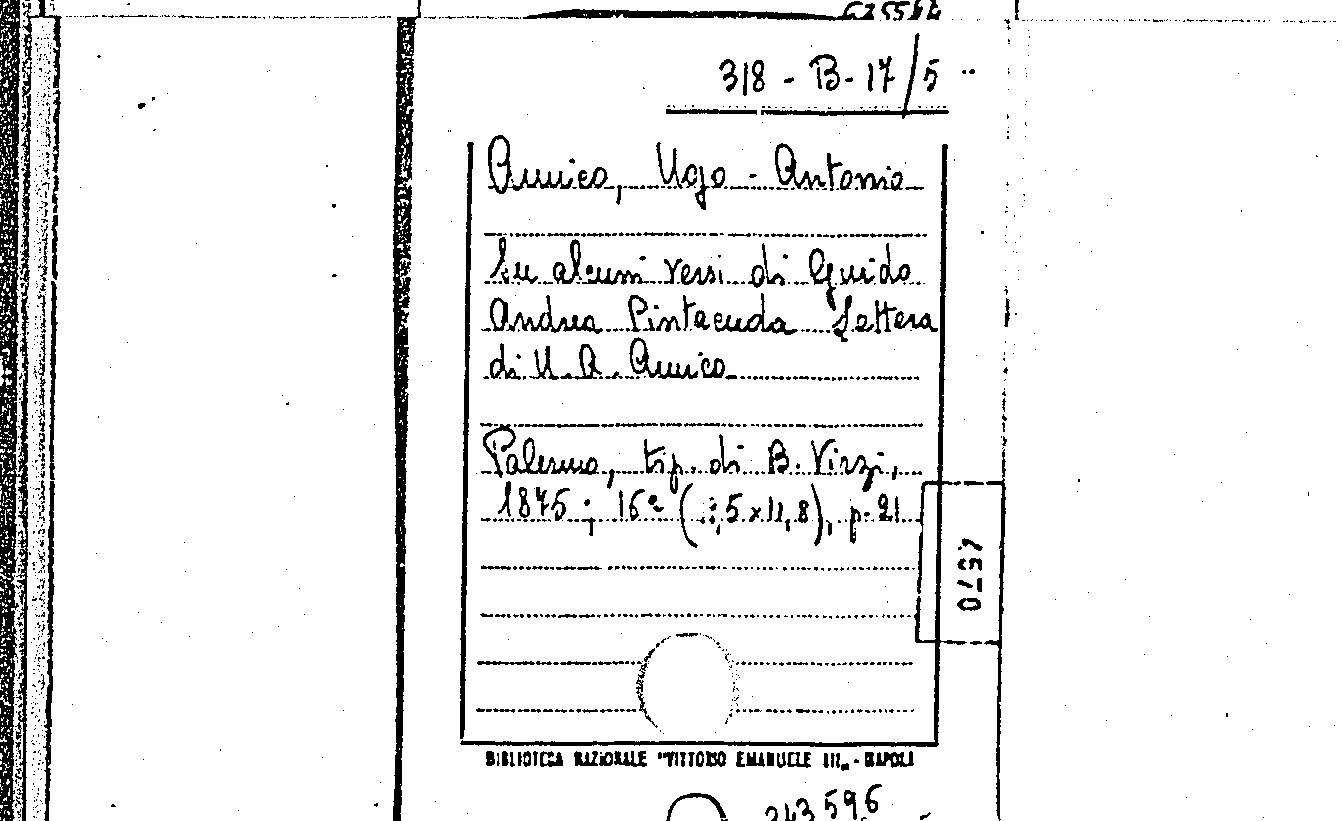 318 - B - 17/5
Amico, Ugo - Antonio
Su alcuni versi di Guido
Andrea Pintacuda Lettera
di U. A. Amico
Palermo, tip. di B. Virzì,
1875; 16° (:;5 x 11,8), p. 21
4570
BIBLIOTECA NAZIONALE "VITTORIO EMANUELE III„ - NAPOLI
243596